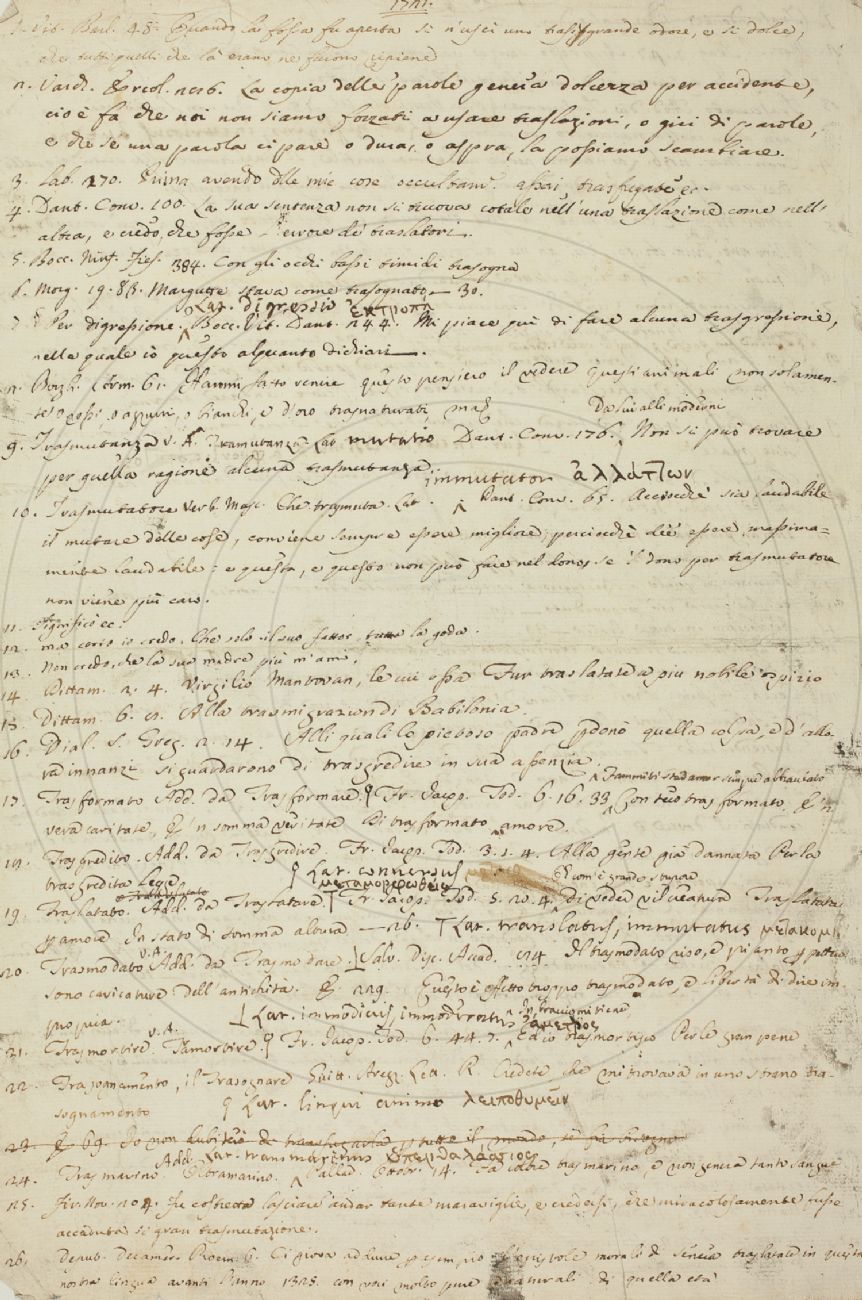 1741.
1. Vit. Barl. 48. Quando la fossa fu aperta si n'uscì uno trasgrande odore, e sì dolce,
che tutti quelli che là erano ne furono
2. Varch. Ercol. La copia delle parole genera dolcezza per accidente,
cioè fa che noi non siamo forzati a usare traslazioni, o giri di parole,
e che se una parola ci pare o dura, o aspra, la possiamo scambiare.
3. Lab. 170. avendo delle mie cose occultam. assai trasfugate ec.
4. Dant. Conv. 100. La sua sentenza non si truova cotale nell'una traslazione come nell'
altra, e credo, che fosse errore de' traslatori.
5. Bocc. Ninf. Fies. 384. Con gli occhi bassi timidi trasogna
6. Morg. 19. 83. Margutte stava come trasognato — 30.
Lat. digressio ἐκτροπή
7. Per digressione. Bocc. Vit. Dant. 244. Mi piace qui di fare alcuna trasgressione,
nella quale io questo alquanto dichiari —.
Borgh. 61. Hammi fatto venire questo pensiero il vedere questi animali non solamen-
te rossi, o azzurri, o bianchi, e d'oro trasnaturati, ma
Da sui alli moderni
9. Trasmutanza V. A. Tramutanza Lat. mutatio Dant. Conv. 176. Non si può trovare
per quella ragione alcuna trasmutanza.
immutator ἀλλάττων
10. Trasmutatore Verb. Masc. Che trasmuta. Lat. Dant. Conv. 65. Acciocchè sia laudabile
il mutare delle cose, conviene sempre essere migliore; perciocchè dee essere massima-
mente laudabile: e questa, e questo non può fare nel dono, se 'l dono per trasmutatore
non viene più caro.
11. Significò ec.
12. ma certo io credo, Che solo il suo fattor, tutta la goda.
13. Non credo, che la sua madre più m'ami,
14. Dittam. 2. 4. Virgilio Mantovan, le cui ossa Fur traslatate a più nobile ospizio
15. Dittam. 6. Alla trasmigrazion di Babilonia.
16. Dial. S. Greg. 2. 14. Alli quali lo pietoso padre perdonò quella colpa, e d'allo-
ra innanzi si guardarono di trasgredire in sua assenzia.
Fammiti stad amor sempre abbracciato
17. Trasformato Add. da Trasformare. Fr. Jacop. Tod. 6. 16. 33. Con teco trasformato, E 'n
vera caritate, E 'n somma veritate Di trasformato amore.
18. Trasgredito. Add. da Trasgredire. Fr. Jacop. Tod. 3. 1. 4. Alla gente già dannata Per la
trasgredita Legge
Lat. conversus
μεταμορφωθείς
E com' è grande stupore
19. Traslatato. Add. da Traslatare. Fr. Jacop. Tod. 5. 20. 4. Di veder vil creatura Traslatata
p amore In stato di somma altura — 26. Lat. translatus, immutatus
20. Trasmodato V. A. Add. da Trasmodare. Salv. Disc. Accad. Il trasmodato riso, e pianto
sono caricature dell'antichità. E 229. Questo è effetto troppo trasmodato, e libertà di dire im-
propria. Lat. immodicus, immoderatus ἄμετρος
21. Trasmortire. V. A. Tramortire. Fr. Jacop. Tod. 6. 44. 7. Ed io trasmortisco Per le gran pene
22. Trasognamento, il Trasognare Guitt. Arezz. Lett. R. Credete che mi trovava in uno strano tra-
sognamento Lat. linqui animo λειποθυμεῖν
23. E 69. Io non dubiterò di trasfugarla p tutto il mondo, se fia bisogno
Add. Lat. transmarinus ὑπερθαλάσσιος
24. Trasmarino Oltramarino. Pallad. Ottobr. 14. Fa colore trasmarino, e non genera tanto sangue
25. Fir. Nov. 204. Fu costretta lasciare andar tante maraviglie, e credersi, che miracolosamente fusse
accaduta sì gran trasmutazione.
26. Deput. Decamer. Proem. 6. Ci giova ad aver p esempio l'epistole morali di Seneca traslatate in questa
nostra lingua avanti l'anno 1325. con voci molto pure e naturali di quella età